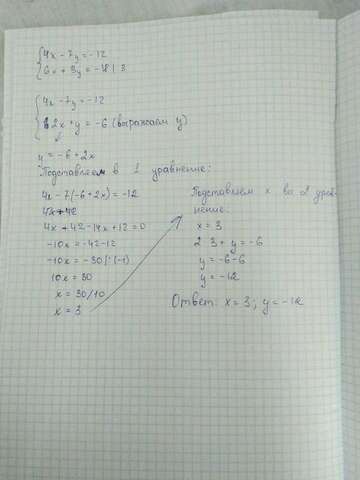 4x - 7y = -12
6x + 3y = -18 | 3
4x - 7y = -12
2x + y = -6 (выражаем y)
y = -6 + 2x
Подставляем в 1 уравнение:
4x - 7(-6 + 2x) = -12
4x + 42
4x + 42 - 14x + 12 = 0
-10x = -42 - 12
-10x = -30 / (-1)
10x = 30
x = 30/10
x = 3
Подставляем x во 2 урав-
нение.
x = 3
2 3 + y = -6
y = -6 - 6
y = -12
Ответ: x = 3; y = -12